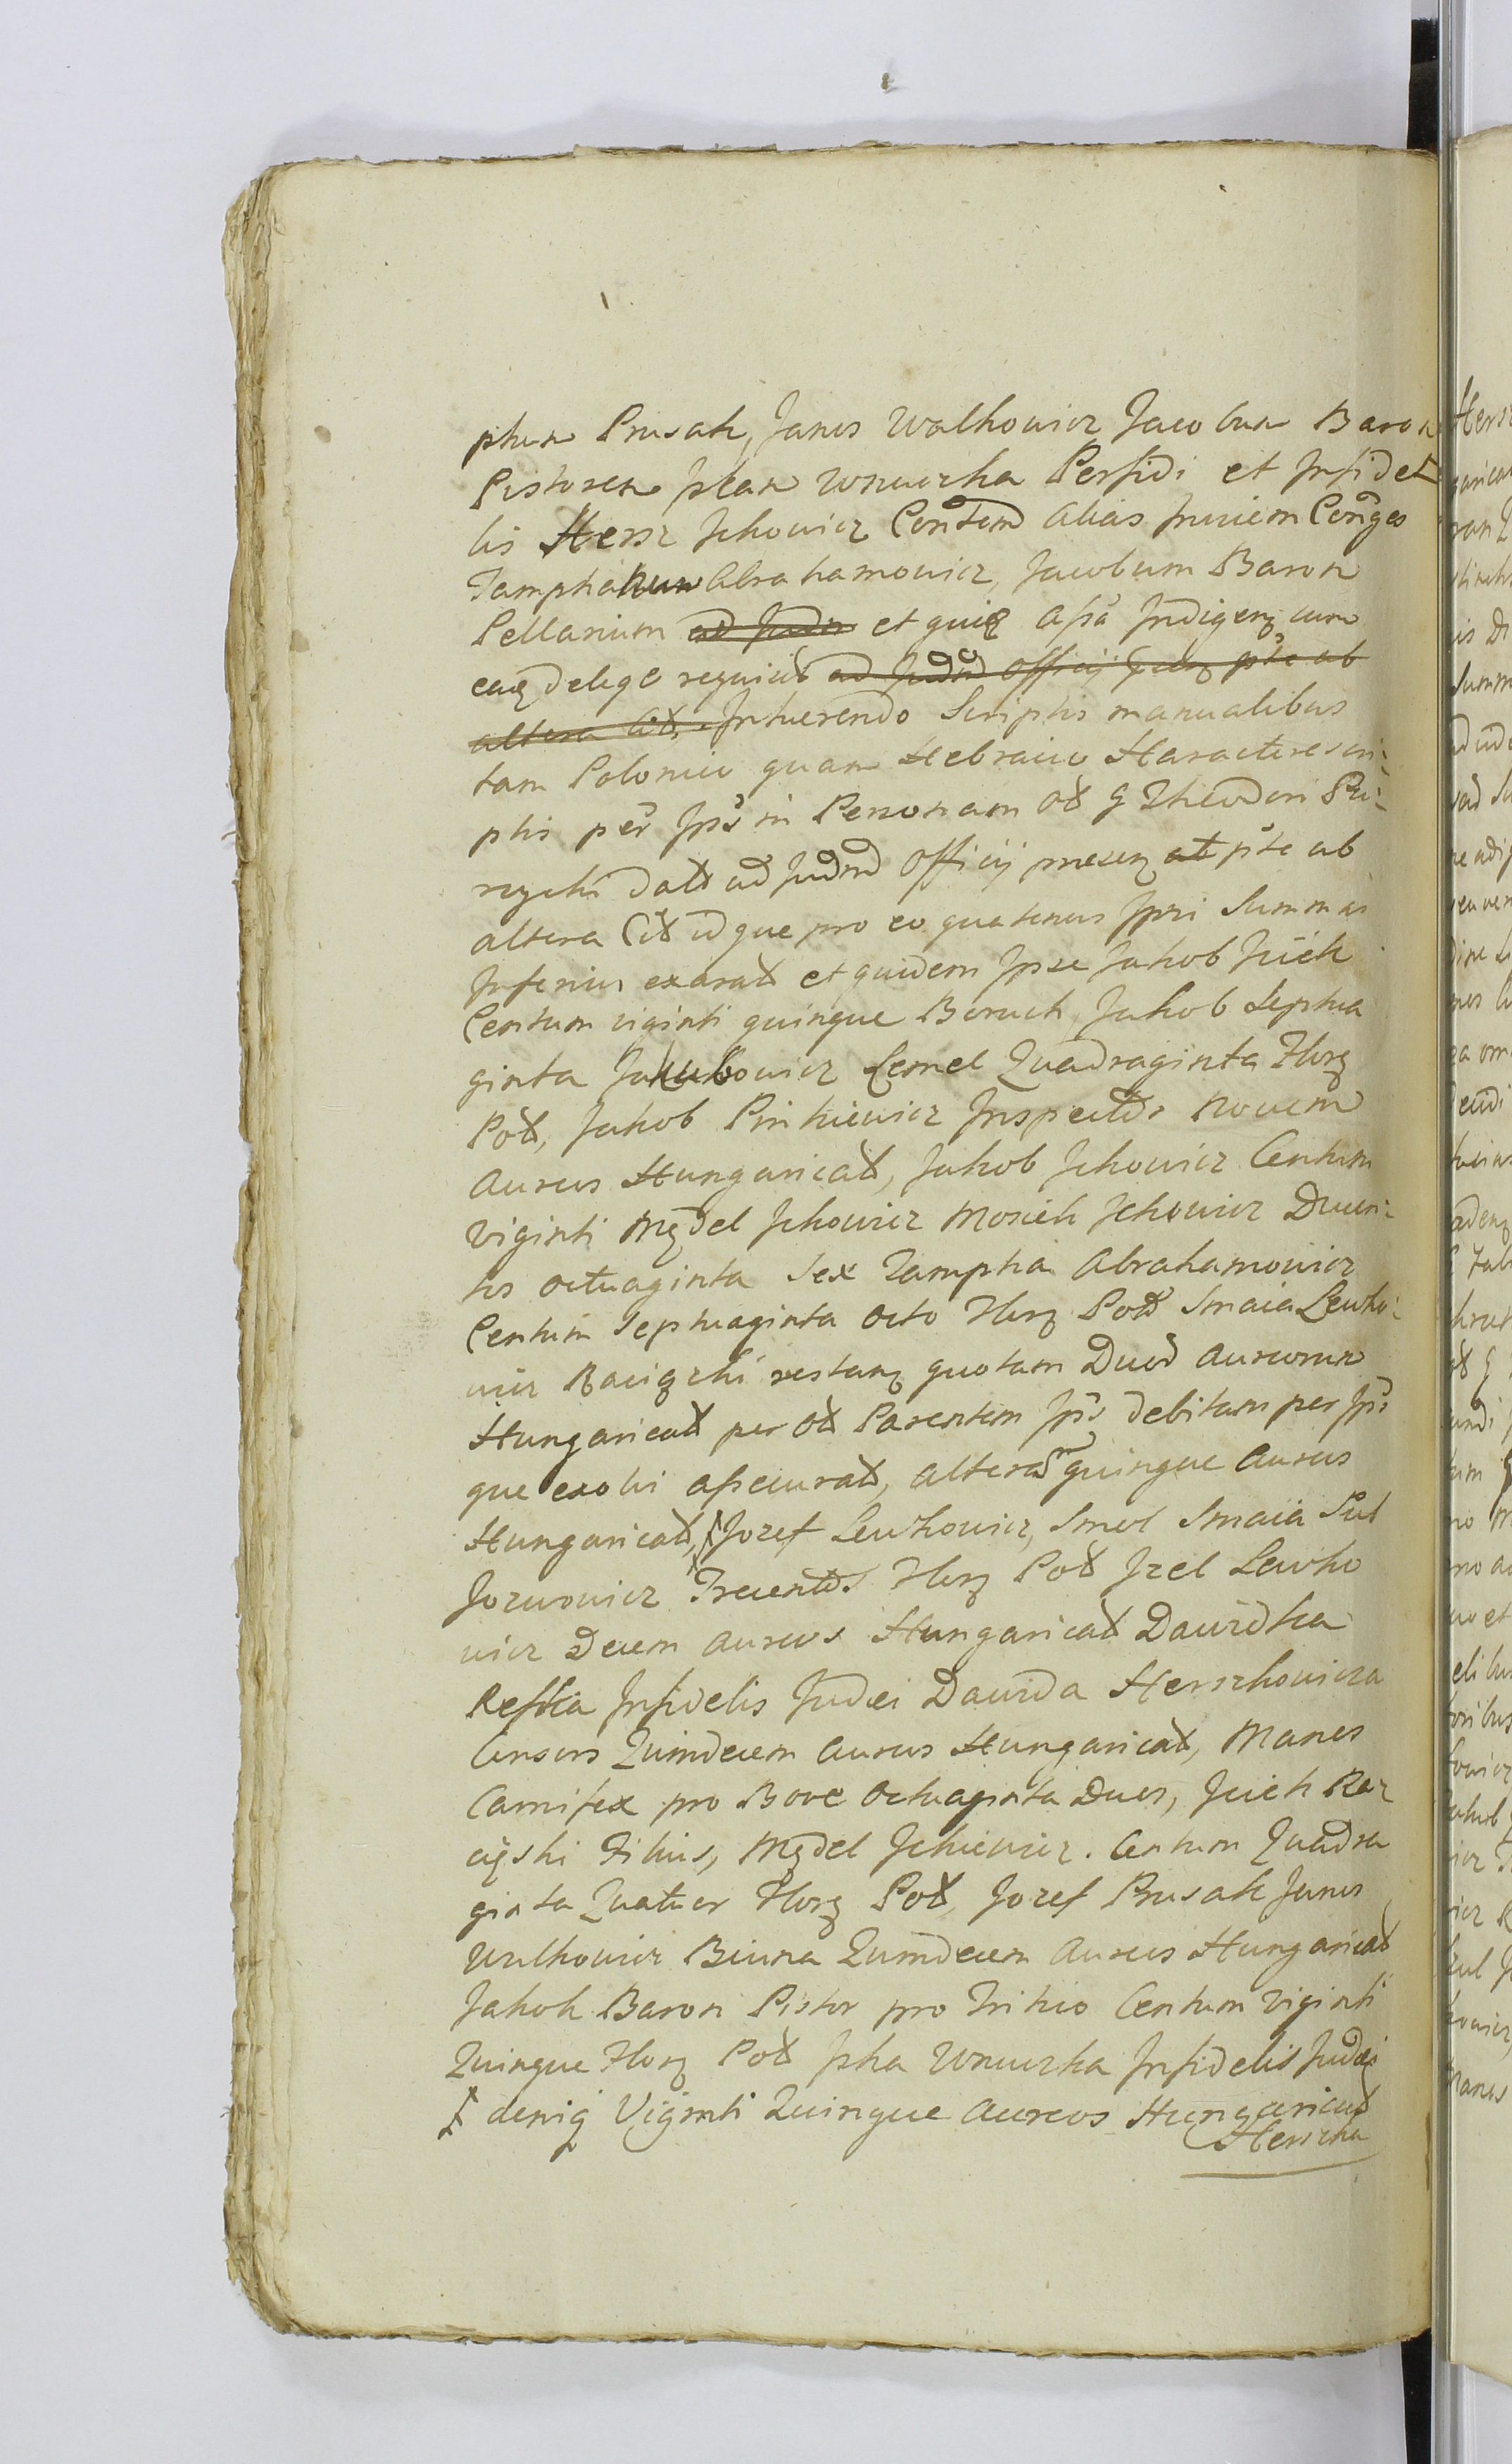 phum Prusak, Janes Walkowicz Jacobum Baron
Pistorem Jckam Wnuczka Perfidi et Infide
lis Hersz Jckowicz Conthem alias Juniem Congeo
Tampha Abrahamowicz, Jacobum Baron
Pellarium ad Judm et quiq apa Indigenz cum
eaq delege requirit ad Judm Officij pnte ab
altera Cit. Intuerendo Scriptis manualibus
tam Polonico quam Hebraico Haractere scri-
ptis per Ips in Personam Od G Theodori
dats ad Judm Officij presenz pte ab
altera Cit idque pro eo quatenus Ipsi Summas
Inferius exarat et quidem Ipse Jakob Jcick
Centum viginti quinque Boruch Jakob Septua
ginta Jakubowicz Lemel Quadraginta Florz
Pol, Jakob Pinkiewicz Inspector Novem
Aureos Hungarical, Jakob Jckowicz Centum
Viginti Mędel Jckowicz Mosiek Jckowicz Ducen-
tos Octuaginta Sex Tampha Abrahamowicz
Centum Septuaginta Octo Florz Pol Smaia Lewko-
wicz Raciązki restanz quotam Duod Aureorum
Hungarical per Od Parentem Ips debitam per Ips
que exolvi assecurat, alteram quinque Aureos
Hungarical, Jozef Lewkowicz, Smol Smaia Sul
Jozwowicz Trecentos Florz Pol Jzel Lewko
wicz Decem aureos Hungarical Dawidka
Relicta Infidelis Judei Dawida Herszkowicza
Censors Quindecem Aureos Hungarical, Manes
Carnifex pro Bove Octuaginta Duos, Jcick Ra-
ciąski Filius, Mędel Jckiewicz. Centum Quadra
ginta Quatuor Florz Pol, Jozef Prusak Janes
Walkowicz Biuna Quindecem Aureos Hungarical
Jakob Baron Pistor pro Tritico Centum Viginti
Quinque Florz Pol Jcka Wnuczka Infidelis Judei
deniq Viginti Quinque Aureos Hungarical
Herszka